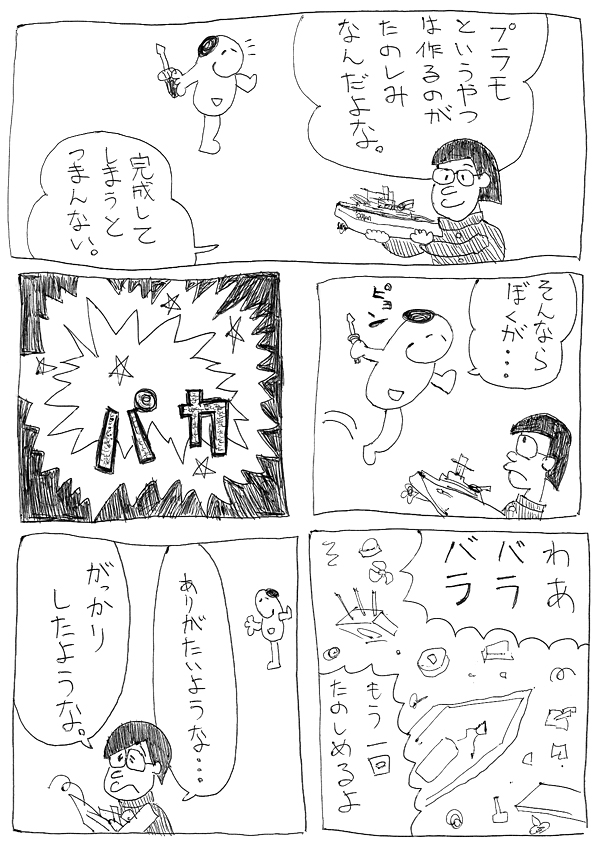 プラモ
というやつ
は作るのが
たのしみ
なんだよな。
完成して
しまうと
つまんない。
そんなら
ぼくが・・・
パカ
わあ
バラ
バラ
もう一回
たのしめるよ
ありがたいような・・・
がっかり
したような。